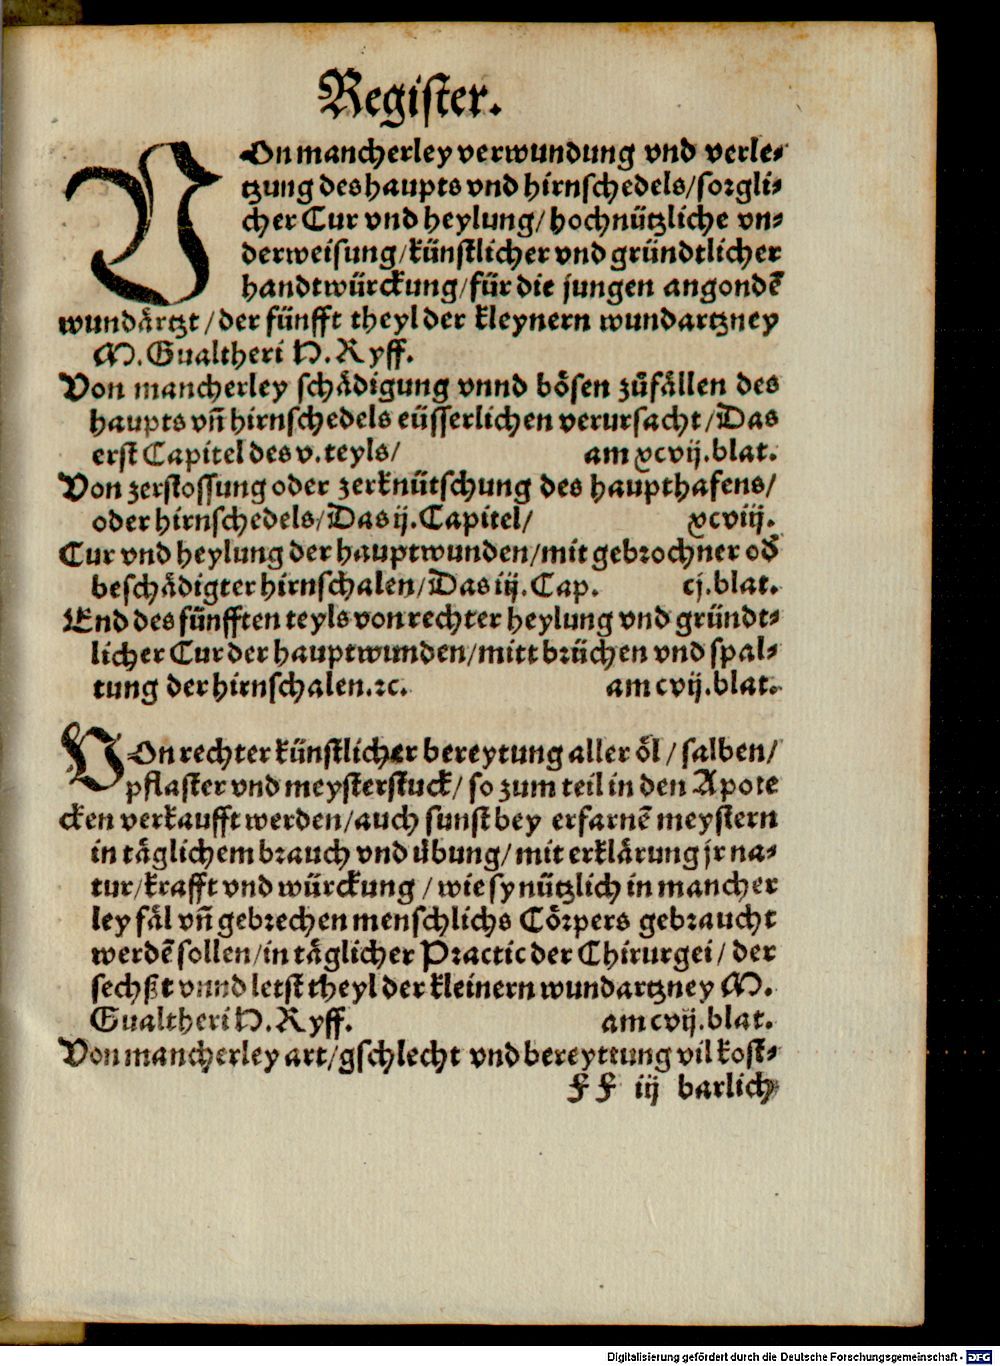 Register.
VOn mancherley verwundung vnd verle-
tzung des haupts vnd hirnschedels/sorgli-
cher Cur vnd heylung/hochnützliche vn-
derweisung/künstlicher vnd gründtlicher
handtwürckung/für die jungen angondẽ
wundärtzt/der fünfft theyl der kleynern wundartzney
M. Gualtheri H. Ryff.
Von mancherley schädigung vnnd bösen zůfällen des
haupts vñ hirnschedels eüsserlichen verursacht/Das
erst Capitel des v. teyls/ am xcvij. blat.
Von zerstossung oder zerknütschung des haupthafens/
oder hirnschedels/Das ij. Capitel/ xcviij.
Cur vnd heylung der hauptwunden/mit gebrochner od
beschädigter hirnschalen/Das iij. Cap. cj. blat.
End des fünfften teyls von rechter heylung vnd gründt-
licher Cur der hauptwunden/mitt brüchen vnd spal-
tung der hirnschalen.ꝛc. am cvij. blat.
VOn rechter künstlicher bereytung aller öl/salben/
pflaster vnd meysterstuck/so zum teil in den Apote
cken verkaufft werden/auch sunst bey erfarnẽ meystern
in täglichem brauch vnd übung/mit erklärung jr na-
tur/krafft vnd würckung/wie sy nützlich in mancher
ley fäl vñ gebrechen menschlichs Cörpers gebraucht
werdẽ sollen/in täglicher Practic der Chirurgei/der
sechßt vnnd letst theyl der kleinern wundartzney M.
Gualtheri H. Ryff. am cvij. blat.
Von mancherley art/gschlecht vnd bereyttung vil kost-
FF iij barlich
Digitalisierung gefördert durch die Deutsche Forschungsgemeinschaft - DFG